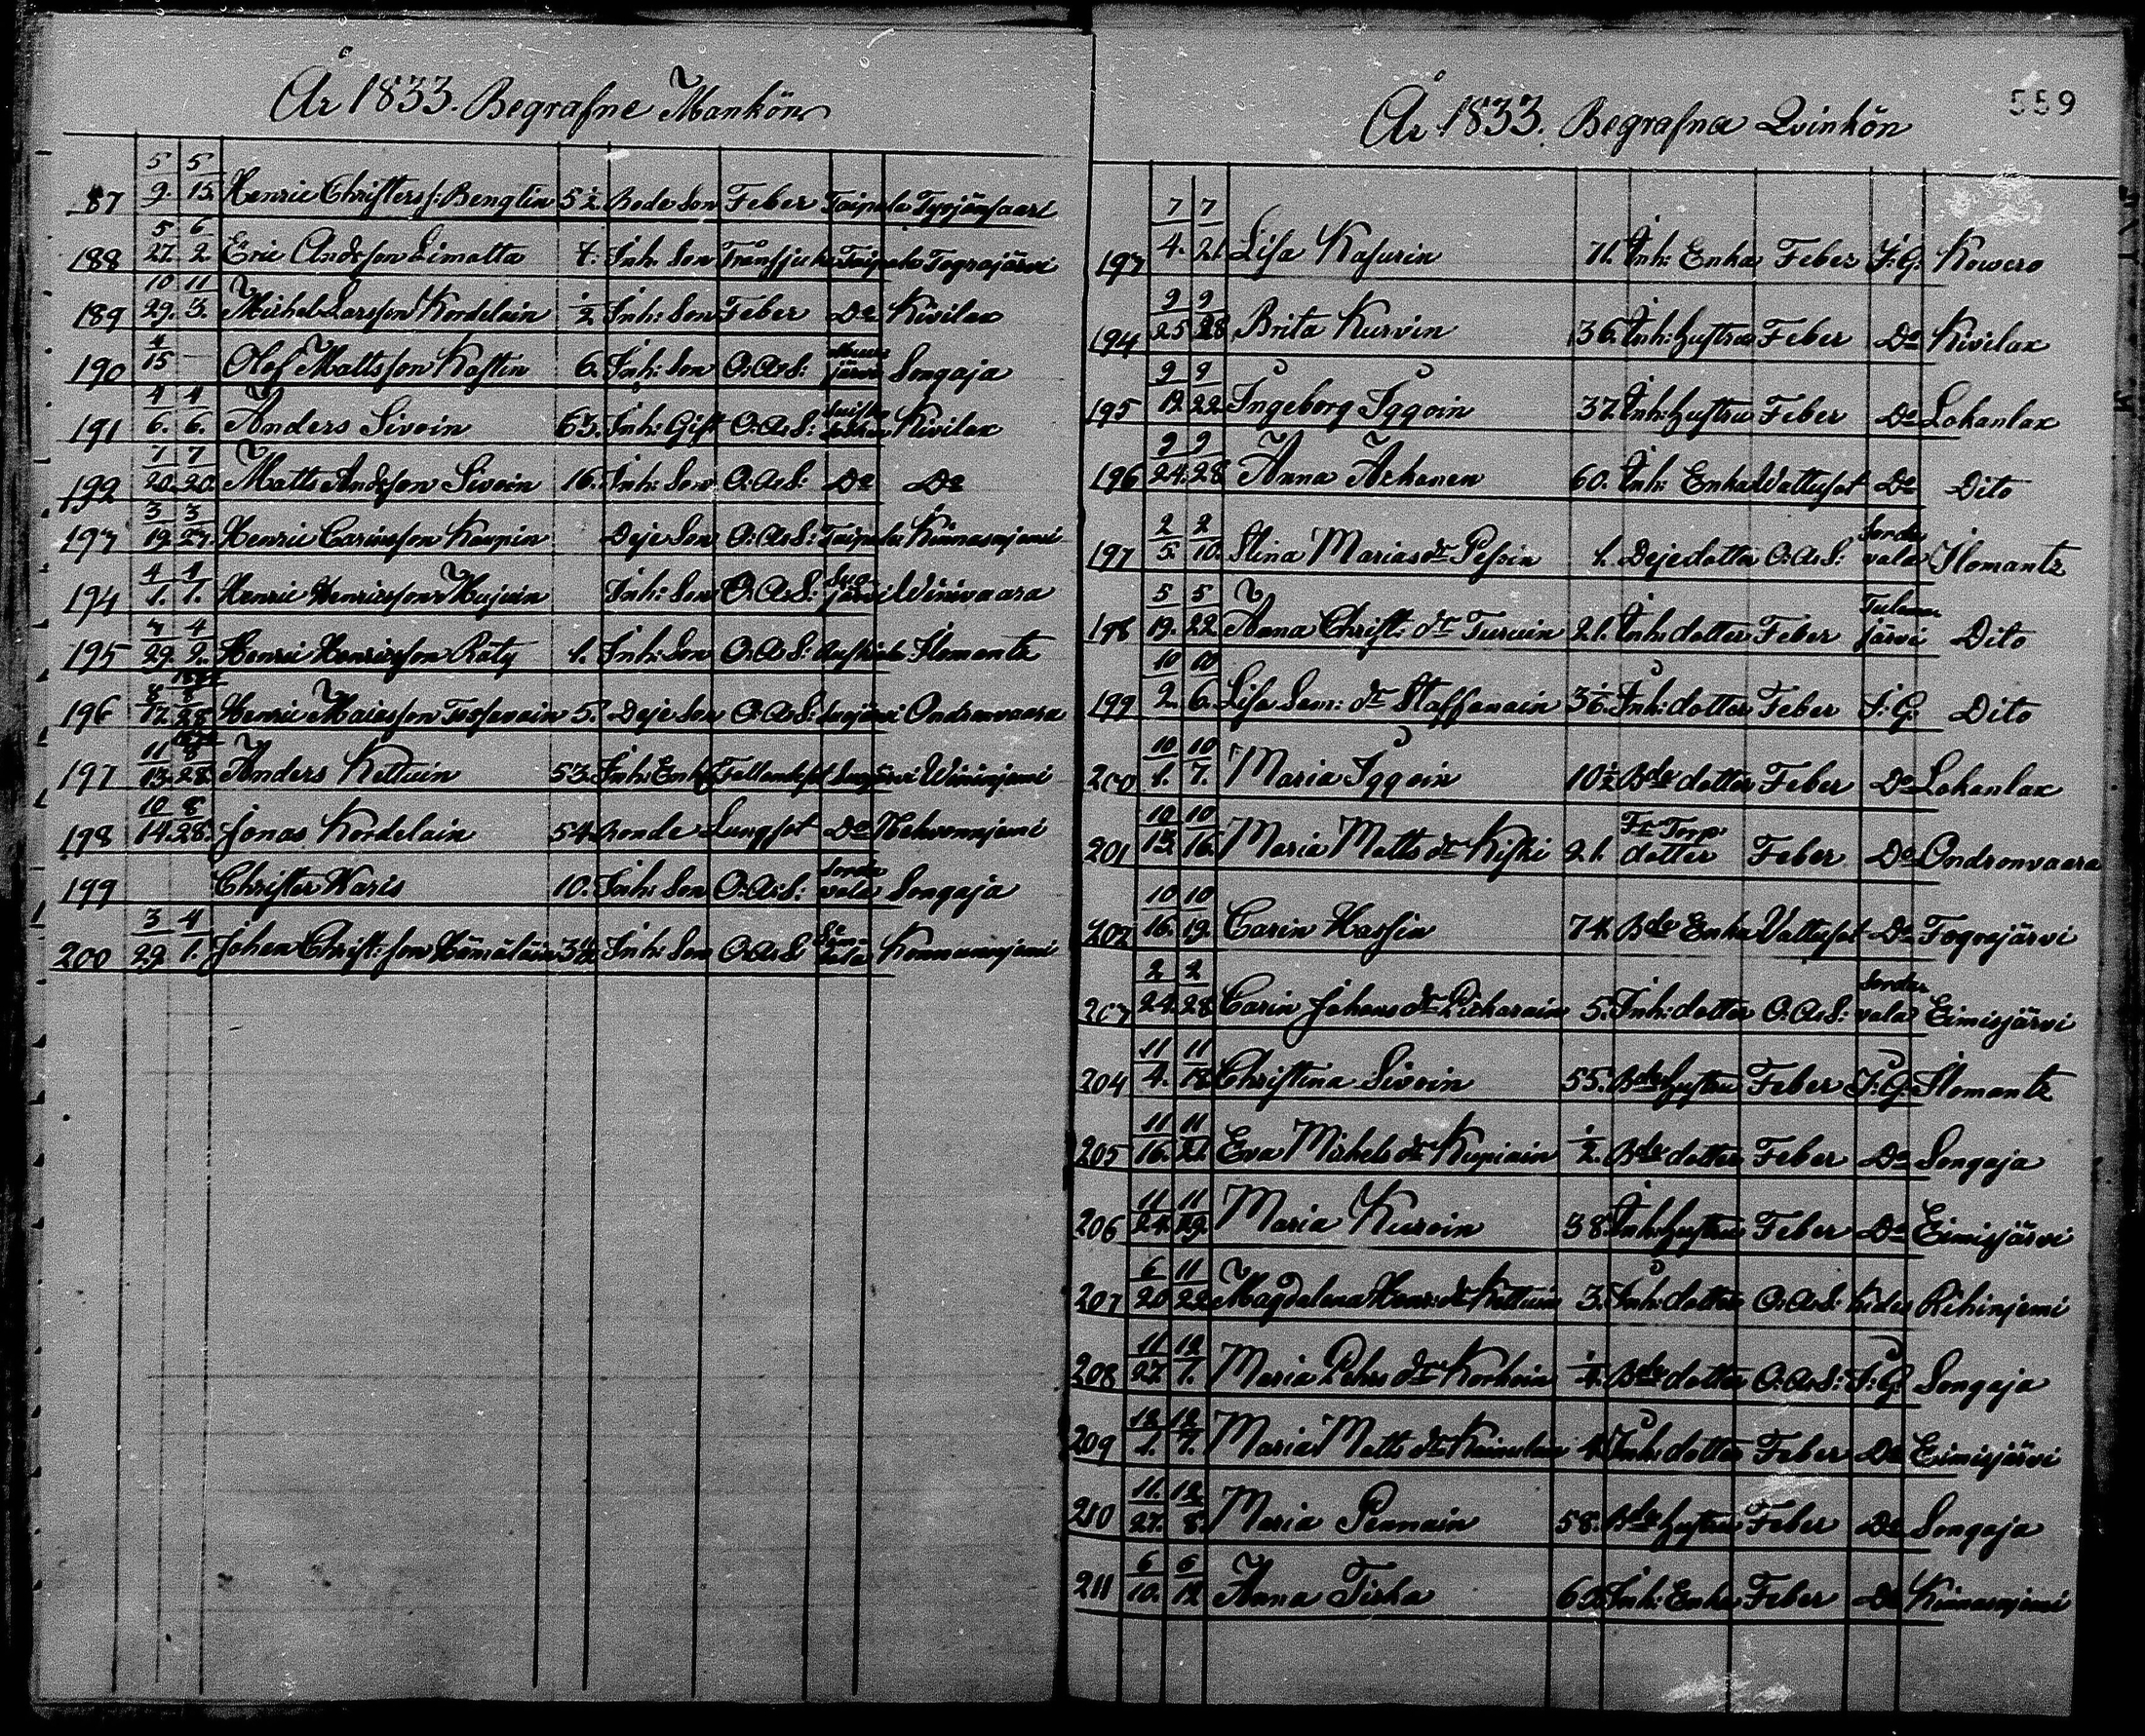 År 1833. Begrafne Mankön
87 5/9. 5/15. Henric Christers s: Bengtin 5½ Bode Son Feber Taipale
188 5/27. 6/2. Eric Andsson Limatta Inh: Son Taipale Tograjärvi
189 10/29. 11/3. Michel Larsson Kordelain ½ Inh: Son Feber Do Kivilax
190 4/15 — Olof Mattsson Kastin 6. Inh: Son O:A:S: Songaja
191 4/6. 4/6. Anders Sivoin 63. Inh: Gift O:A:S: Kivilax
192 7/20. 7/20. Matts Andsson Sivoin 16. Inh: Son O:A:S: Do Do
193 3/19. 3/27. Henric Carinsson Deje Son O:A:S: Taipale Kinnasnjemi
194 4/1. 4/1. Henric Henricsson Inh: Son O:A:S: Suojärvi
195 4/2. Henric Henricsson Räty 1. Inh: Son O:A:S: Ilomantz
196 8/17. 8/28 Henric Maiesson 5. Deje Son O:A:S: Suojärvi Ondronvaara
197 11/13. 8/28. Anders Kettuin 53. Inh: Enkl Suojärvi Wininjemi
198 10/14. 8/28. Jonas Kordelain 54. Bonde Lungsot Do
199 Christer Waris 10. Inh: Son O:A:S: Sordavala Songaja
200 3/29. 4/1. Johan Christ: son Hämäläin Inh: Son O:A:S
År 1833. Begrafna Qvinkön
559
193 7/4. 7/21. Lisa Kasurin 71. Inh: Enka Feber I:G: Kowero
194 9/25 9/28 Brita Kurvin 36. Inh: hustru Feber Do Kivilax
195 9/12 9/22 Ingeborg Iggoin 37. Inh: hustru Feber Do Lohanlax
196 9/24. 9/28 Anna 60. Inh: Enka Vattusot Do Dito
197 2/5. 2/10. Stina Marias dr Pessin 1. Deje dotter O:A:S: Sordavala Ilomantz
198 5/19. 5/22 Anna Christ: dr Turuin 21. Inh: dotter Feber Tulemajärvi Dito
199 10/2. 10/6. Lisa Sam: dr Staffanain Inh: dotter Feber I:G: Dito
200 10/1. 10/7. Maria Iggoin 10½ Bde dotter Feber Do Lohanlax
201 10/13. 10/16. Maria Matts dr Kiski 21. Torp dotter Feber Do Ondronvaara
202 10/16. 10/19. Carin Hassin 74. Bde Enka Vattusot Do Tograjärvi
203 2/24. 2/28 Carin Johans dr Pitkarain 5. Inh: dotter O:A:S: Sordavala Eimisjärvi
204 11/4. Christina Sivoin 55. Bde hustru Feber I:G: Ilomantz
205 11/16. 11/21. Eva Michels dr Kupiain ½. Bde dotter Feber Do Songaja
206 11/24. 11/29. Maria Kuroin 38 Inh: hustru Feber Do Eimisjärvi
207 6/20 11/22 Magdalena Henr: dr Kettuin 3. Inh: dotter O:A:S: Kides Rihinjemi
208 11/27. 12/1. Maria Pehrs dr Korhoin Bde dotter O:A:S: I:G: Songaja
209 12/1. 12/7. Maria Matts dr Kainulain Inh: dotter Feber Do Eimisjärvi
210 11/27. 12/8. Maria Pennain 58. Bde hustru Feber Do Songaja
211 6/10. 6/12 Anna Tiska Inh: Enka Feber Do Kinnasnjemi